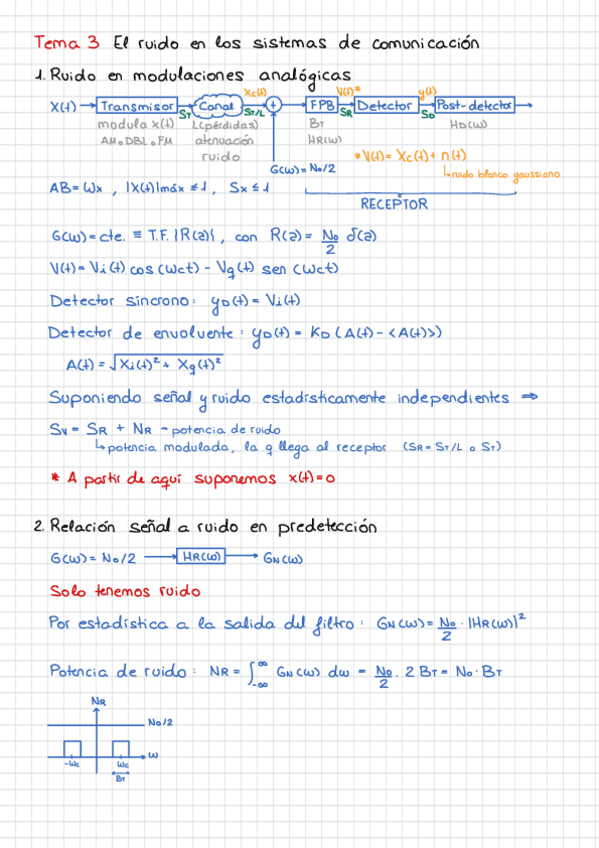 Tema 3 El ruido en los sistemas de comunicación
1. Ruido en modulaciones analógicas
Xc(t) V(t)* y(t)
X(t) Transmisor Canal + FPB Detector Post-detector
ST ST/L SR SD
modula x(t) L(pérdidas) BT HD(ω)
AM o DBL o FM atenuación HR(ω)
ruido
* V(t) = Xc(t) + n(t)
ruido blanco gaussiano
G(ω) = No/2
AB = Wx , |X(t)|máx ≤ 1 , Sx ≤ 1
RECEPTOR
G(ω) = cte. ≡ T.F. {R(a)}, con R(a) = No/2 δ(a)
V(t) = Vi(t) cos(ωct) - Vq(t) sen(ωct)
Detector síncrono: yD(t) = Vi(t)
Detector de envolvente: yD(t) = KD (A(t) - <A(t)>)
A(t) = √Xi(t)² + Xq(t)²
Suponiendo señal y ruido estadísticamente independientes ⇒
Sv = SR + NR → potencia de ruido
↳ potencia modulada, la q llega al receptor (SR = ST/L o ST)
* A partir de aquí suponemos x(t) = 0
2. Relación señal a ruido en predetección
G(ω) = No/2 → HR(ω) → GN(ω)
Solo tenemos ruido
Por estadística a la salida del filtro: GN(ω) = No/2 · |HR(ω)|²
Potencia de ruido: NR = ∫-∞^∞ GN(ω) dω = No/2 · 2 BT = No · BT
NR
No/2
-ωc ωc ω
BT